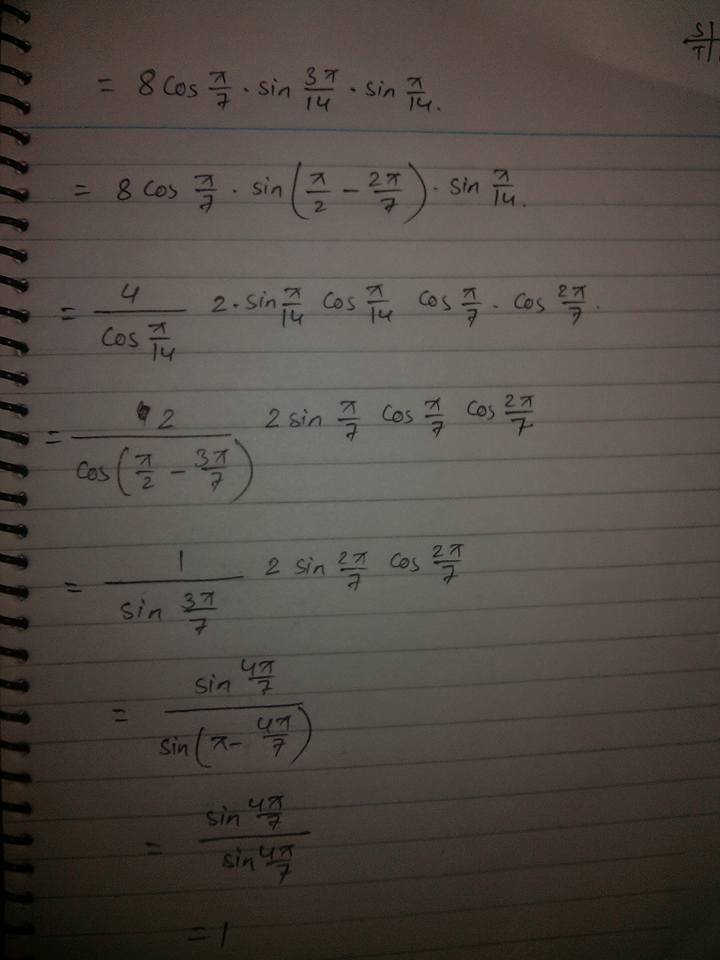 S|
T|
= 8 cos π/7 · sin 3π/14 · sin π/14.
= 8 cos π/7 · sin(π/2 − 2π/7) · sin π/14.
= 4/(cos π/14) 2 · sin π/14 cos π/14 cos π/7 · cos 2π/7.
= 2/(cos(π/2 − 3π/7)) 2 sin π/7 cos π/7 cos 2π/7
= 1/(sin 3π/7) 2 sin 2π/7 cos 2π/7
= (sin 4π/7)/(sin(π − 4π/7))
= (sin 4π/7)/(sin 4π/7)
= 1